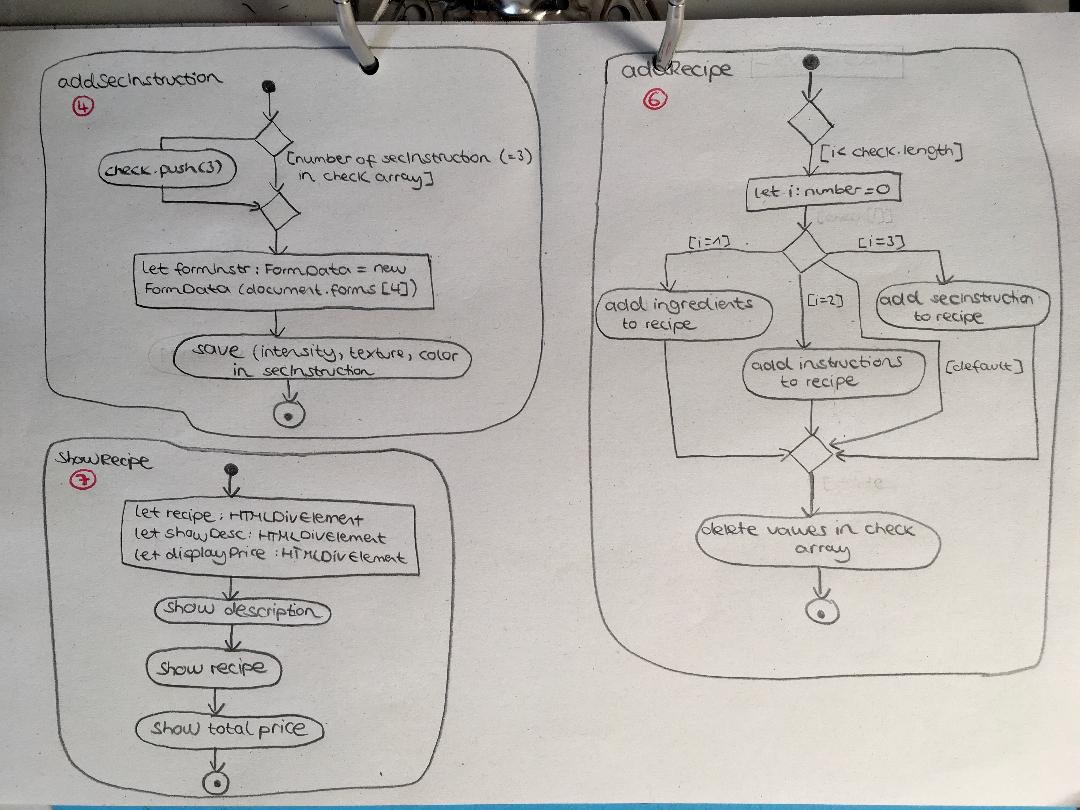 addSecInstruction
4
check.push(3)
[number of secInstruction (=3)
in check array]
let formInstr : FormData = new
FormData (document.forms [4])
save (intensity, texture, color
in secInstruction
showRecipe
7
let recipe : HTMLDivElement
let showDesc : HTMLDivElement
let displayPrice : HTMLDivElement
show description
show recipe
show total price
addRecipe
6
[i< check.length]
let i : number = 0
[i=1]
[i=3]
add ingredients
to recipe
[i=2]
add secInstruction
to recipe
add instructions
to recipe
[default]
delete values in check
array